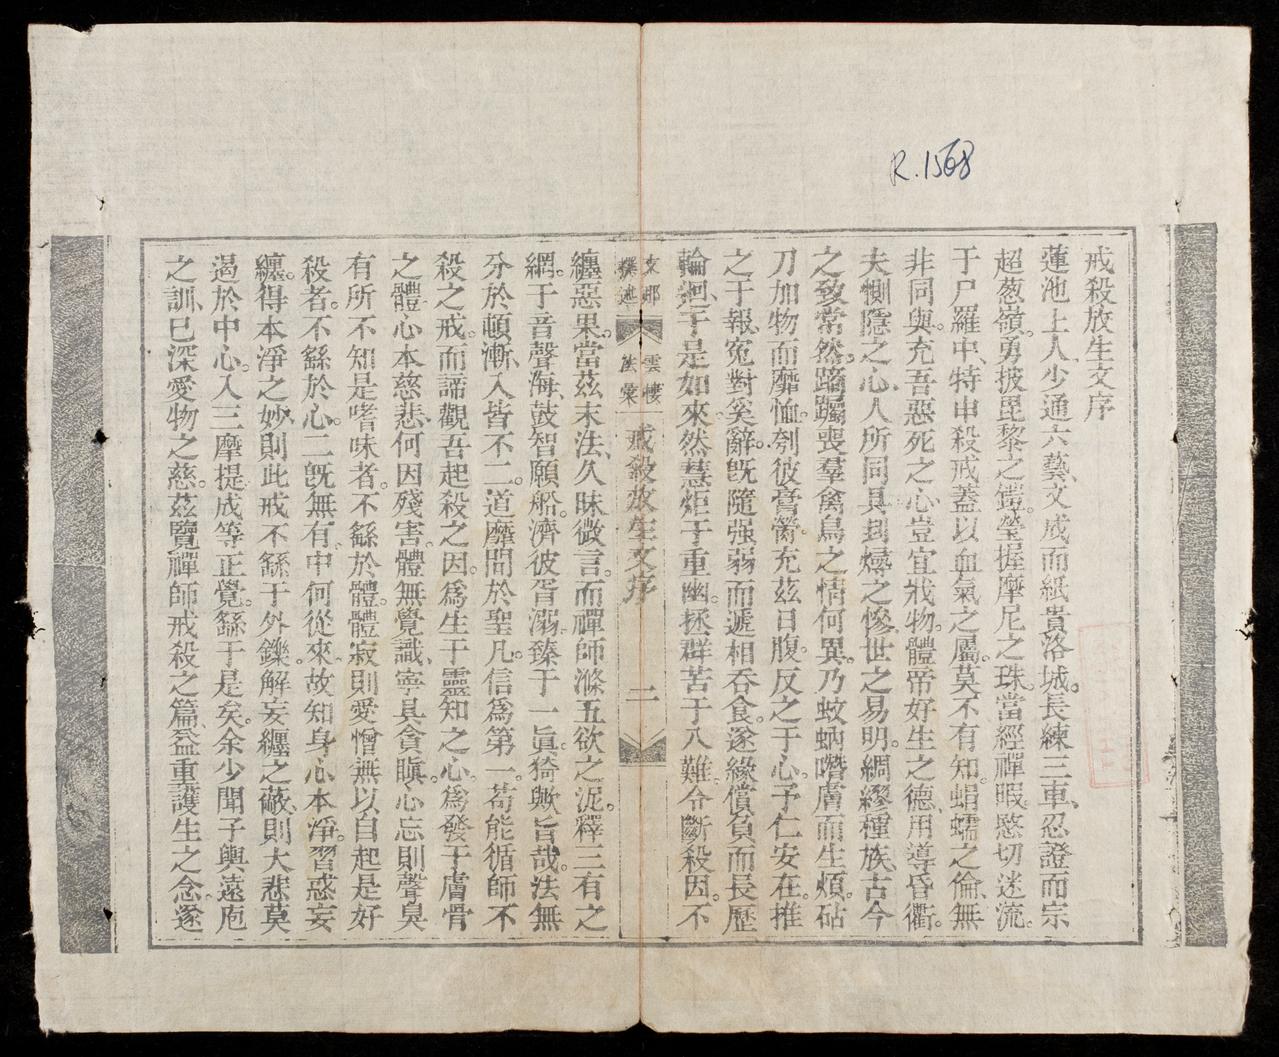 R.1568
戒殺放生文序
蓮池上人少通六藝文成而紙貴洛城。長練三車、忍證而宗
超葱嶺。勇披毘黎之鎧。瑩握摩尼之珠。當經禪暇。愍切迷流。
于尸羅中、特申殺戒蓋以血氣之屬。莫不有知。蜎蠕之倫、無
非同與。充吾惡死之心豈宜戕物。體帝好生之德、用導昏衢。
夫惻隱之心、人所同具刲㷟之慘、世之易明。綢繆種族古今
之致常然。蹢躅喪羣禽鳥之情何異。乃蚊蚋噆膚而生煩。砧
刀加物而靡恤。刳彼膏膋。充茲口腹。反之于心。予仁安在。推
之于報、寃對奚辭。旣隨强弱而遞相吞食。遂緣償負而長歷
輪𢌞、于是如來然慧炬于重幽。拯群苦于八難。令斷殺因。不
支那
撰述
雲棲
法彙
戒殺放生文序
二
纏惡果。當茲末法、久昧微言。而禪師滌五欲之泥。釋三有之
網。于音聲海、鼓智願船。濟彼胥溺。臻于一眞。猗歟旨哉。法無
分於頓漸、入皆不二。道靡間於聖凡。信爲第一。苟能循師不
殺之戒。而諦觀吾起殺之因。爲生于靈知之心。爲發于膚骨
之體心本慈悲、何因殘害。體無覺識、寧具貪瞋。心忘則聲臭
有所不知是嗜味者。不繇於體。體寂則愛憎無以自起是好
殺者。不繇於心。二旣無有、中何從來。故知身心本淨。習惑妄
纏。得本淨之妙、則此戒不繇于外鑠。解妄纏之蔽、則大悲莫
遏於中心。入三摩提。成等正覺。繇于是矣。余少聞子輿遠庖
之訓、已深愛物之慈。茲覽禪師戒殺之篇、益重護生之念。遂